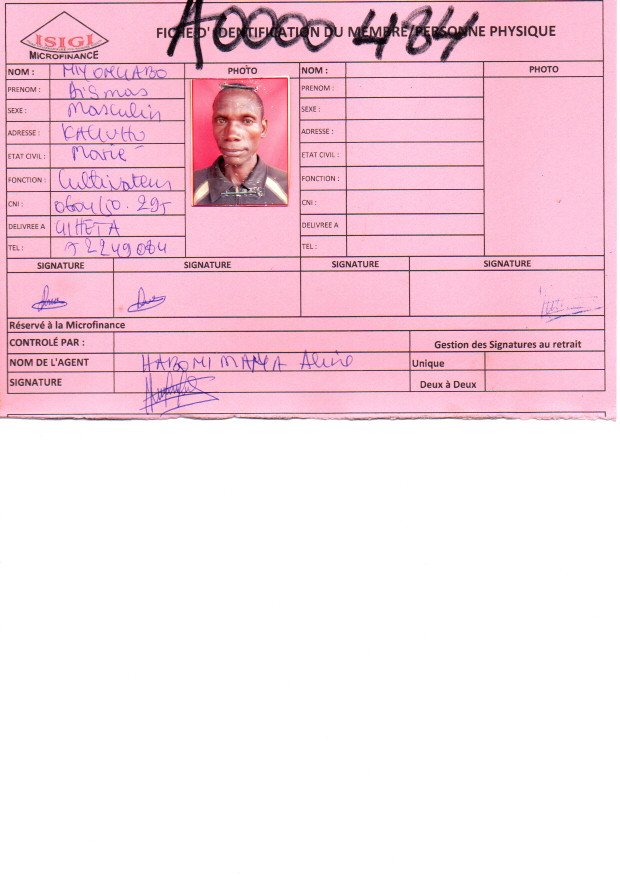 A0000484
ISIGI
MICROFINANCE
FICHE D'IDENTIFICATION DU MEMBRE/PERSONNE PHYSIQUE
NOM : PHOTO NOM : PHOTO
PRENOM : Dismas PRENOM :
SEXE : Masculin SEXE :
ADRESSE : ADRESSE :
ETAT CIVIL : Marié ETAT CIVIL :
FONCTION : Cultivateur FONCTION :
CNI : CNI :
DELIVREE A GIHETA DELIVREE A
TEL : TEL :
SIGNATURE SIGNATURE SIGNATURE SIGNATURE
Réservé à la Microfinance
CONTROLÉ PAR : Gestion des Signatures au retrait
NOM DE L'AGENT HABONIMANA Aline Unique
SIGNATURE Deux à Deux